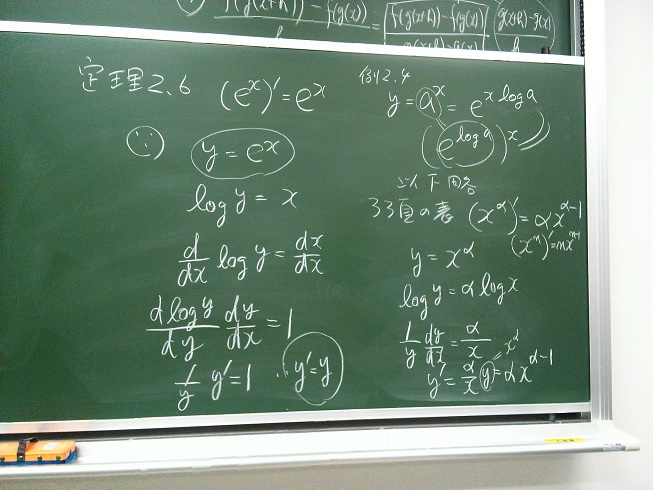 f(g(x+h)) - f(g(x)) / h = f(g(x+h)) - f(g(x)) / g(x+h) - g(x) g(x+h) - g(x) / h
定理2.6 (e^x)' = e^x
∵ y = e^x
log y = x
d/dx log y = dx/dx
d log y/dy dy/dx = 1
1/y y' = 1 ∴ y' = y
例2.4
y = a^x = e^{x log a}
(e^{log a})^x
以下同各
33頁の表 (x^α)' = αx^{α-1}
(x^n)' = nx^{n-1}
y = x^α
log y = α log x
1/y dy/dx = α/x
x^α
y' = α/x y = αx^{α-1}